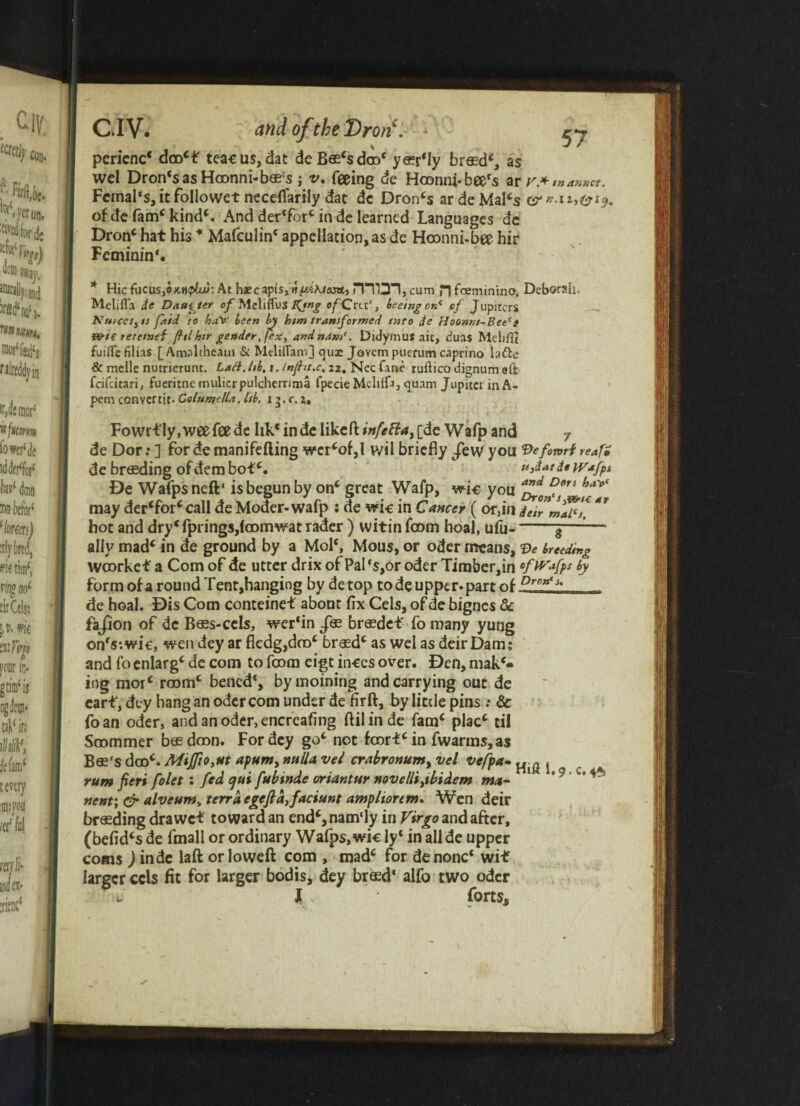 C.IV. and of the Dronʻ. 57
periencʻ dooʻt teac us, dat de Beeʻs dooʻ yeerʻly breedʻ, as
wel Dronʻs as Hoonni-beeʻs ; v. seeing de Hoonni-beeʻs ar
Femalʻs, it followet necessarily dat de Dronʻs ar de Malʻs
of de samʻ kindʻ. And derʻforʻ in de learned Languages de
Dronʻ hat his * Masculinʻ appellation, as de Hoonni-bee hir
Femininʻ.
V.* in annot.
& n.12,&19.
* Hic fucus, ὁ κηφὼ: At hæc apis, ἡ μέλισσα, דבורה, cum ה fœminino. Deborah.
Melissa de Daughter of Melissus King of Cretʻ, beeing onʻ of Jupiters
Nurces, is said to havʻ been by him transformed into de Hoonni-Beeʻ:
wic reteinet stil hir gender, sex, and namʻ. Didymus ait, duas Melissi
fuisse filias [ Amaltheam & Melissam] quæ Jovem puerum caprino lacte
& melle nutrierunt. Lact. lib. 1. Instit.c. 22. Nec sane rustico dignum est
sciscitari, fueritne mulier pulcherrima specie Melissa, quam Jupiter in A-
pem convertit. Columella, lib. 13. c. 2.
Fowrtly, wee see de likʻ in de likest insecta, [de Wasp and
de Dor: ] for de manifesting werʻof, I wil briefly shew you
de breeding of dem botʻ.
7
De fowrt reasʻ
is, dat de Wasps
and Dors havʻ
Dronʻs, wic ar
deir malʻs.
De Wasps nestʻ is begun by onʻ great Wasp, wic you
may derʻforʻ call de Moder-wasp : de wic in Cancer ( or, in
hot and dryʻ springs, somwat rader ) witin som hoal, usu-
ally madʻ in de ground by a Molʻ, Mous, or oder means,
woorket a Com of de utter drix of Palʻs, or oder Timber, in
form of a round Tent, hanging by de top to de upper-part of
de hoal. Dis Com conteinet about six Cels, of de bignes &
fashion of de Bees-cels, werʻin she breedet so many yung
onʻs: wic, wen dey ar fledg, dooʻ breedʻ as wel as deir Dam:
and so enlargʻ de com to som eigt inces over. Den, makʻ-
ing morʻ roomʻ benedʻ, by moining and carrying out de
eart, dey hang an oder com under de first, by little pins : &
so an oder, and an oder, encreasing stil in de samʻ placʻ til
Soommer bee doon. For dey goʻ not foortʻ in swarms, as
Beeʻs dooʻ. Missio, ut apum, nulla vel crabronum, vel vespa-
rum fieri solet : sed qui subinde oriantur novelli, ibidem ma-
nent; & alveum, terrâ egestâ, faciunt ampliorem. Wen deir
breeding drawet toward an endʻ, namʻly in Virgo and after,
(besidʻs de small or ordinary Wasps, wic lyʻ in all de upper
coms ) in de last or lowest com , madʻ for de noncʻ wit
larger cels fit for larger bodis, dey breedʻ also two oder
8
De breeding
of Wasps by
Dronʻs.
Hist 1. 9. c. 42
I sorts,